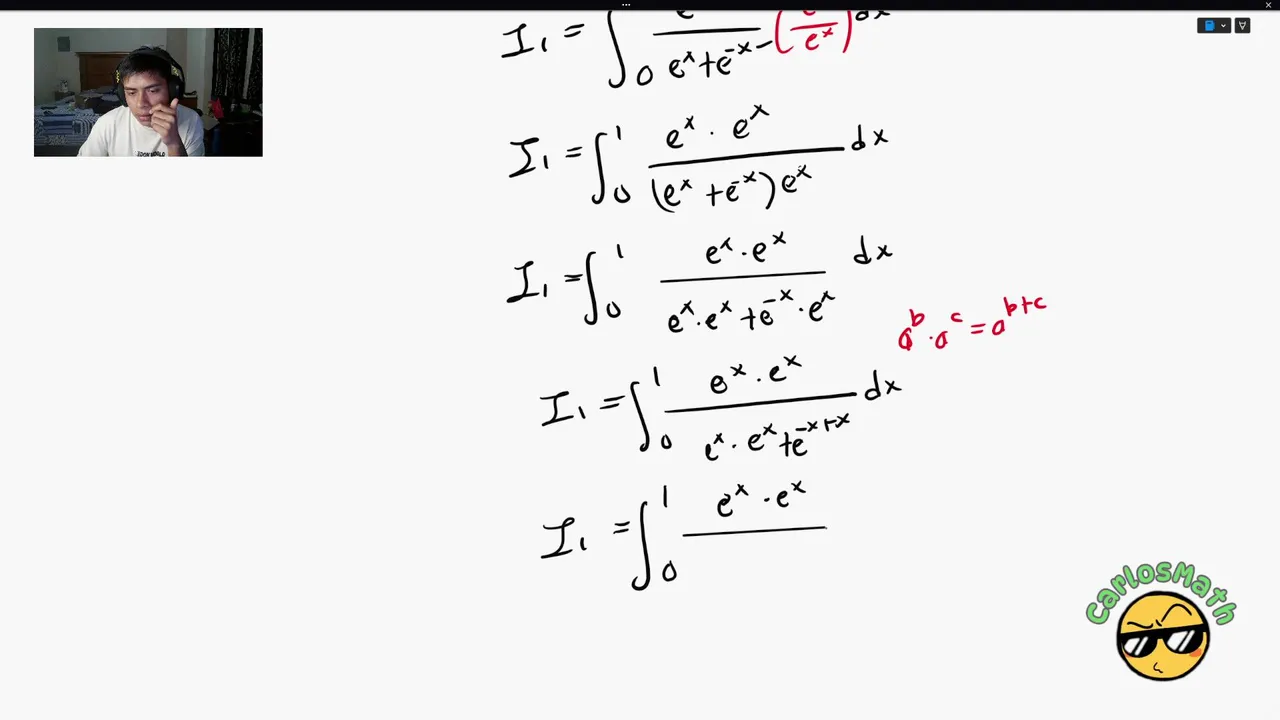 I₁ = ∫₀ e^x / (e^x + e^-x) · (e^x / e^x) dx
I₁ = ∫₀¹ (e^x · e^x) / ((e^x + e^-x) e^x) dx
I₁ = ∫₀¹ (e^x · e^x) / (e^x · e^x + e^-x · e^x) dx
a^b · a^c = a^(b+c)
I₁ = ∫₀¹ (e^x · e^x) / (e^x · e^x + e^(-x+x)) dx
I₁ = ∫₀¹ e^x · e^x
CarlosMath